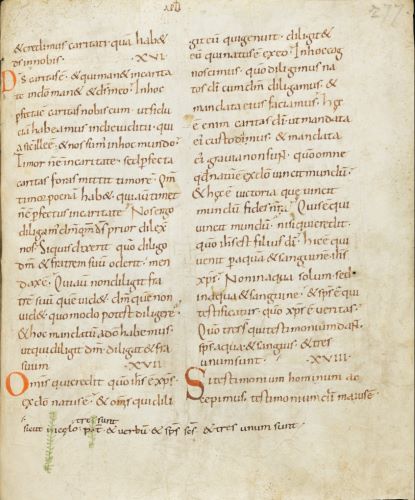 277
& credimus caritati quā hab&
ds in nobis · XVI ·
Ds caritas ē · & qui man& in caritate in do man& & ds in eo · In hoc
pfecta ē caritas nobiscum · ut fiduciā habeamus in die iudicii · quia
sic ille ē · & nos sum; in hoc mundo ·
Timor nē in caritate · sed pfecta
caritas foras mittit timorē · Qm̄
timor poenā hab& · qui autē timet
nē pfectus in caritate · Nos ergo
diligam; dm̄ qm̄ ds prior dilexit
nos · Si quis dixerit quo diligo
dm̄ & fratrem suum oderit · mendax ē · Qui enī non diligit fratrē suū quē uid& · dm̄ quē non
uid& quomodo potest diligere ·
& hoc mandatū ab do habemus ·
ut qui diligit dm̄ diligat & frā
suum · XVII ·
Omis qui credit quo ihs ē xps ·
ex do natus ē · & omis qui diligit eū qui genuit · diligit &
eū qui natus ē ex eo · In hoc cognoscimus · quo diligimus natos di cum dm̄ diligamus · &
mandata eius faciamus · Hęc
ē enim caritas di ut mandata
ei; custodimus · & mandata
ei; grauia non sun̄t · quo omne
qd natū ē ex do uincit mundū ·
& hęc ē uictoria quę uincit
mundū fides nr̄a · Quis ē qui
uincit mundū · nisi qui credit ·
quo ihs est filius di · Hic ē qui
uenit p aquā & sanguinē ihs
xps · Non in aqua solum · sed
in aqua & sanguine · & sps ē qui
testificatur · quo xps ē ueritas ·
Quo tres qui testimonium dan̄t ·
sps · aqua · & sanguis · & tres
unum sunt · XVIII ·
Si testimonium hominum accepimus · testimonium di maius ē ·
tres sunt
sicut in celo · pat & uerbū & sps scs · & tres unum sunt